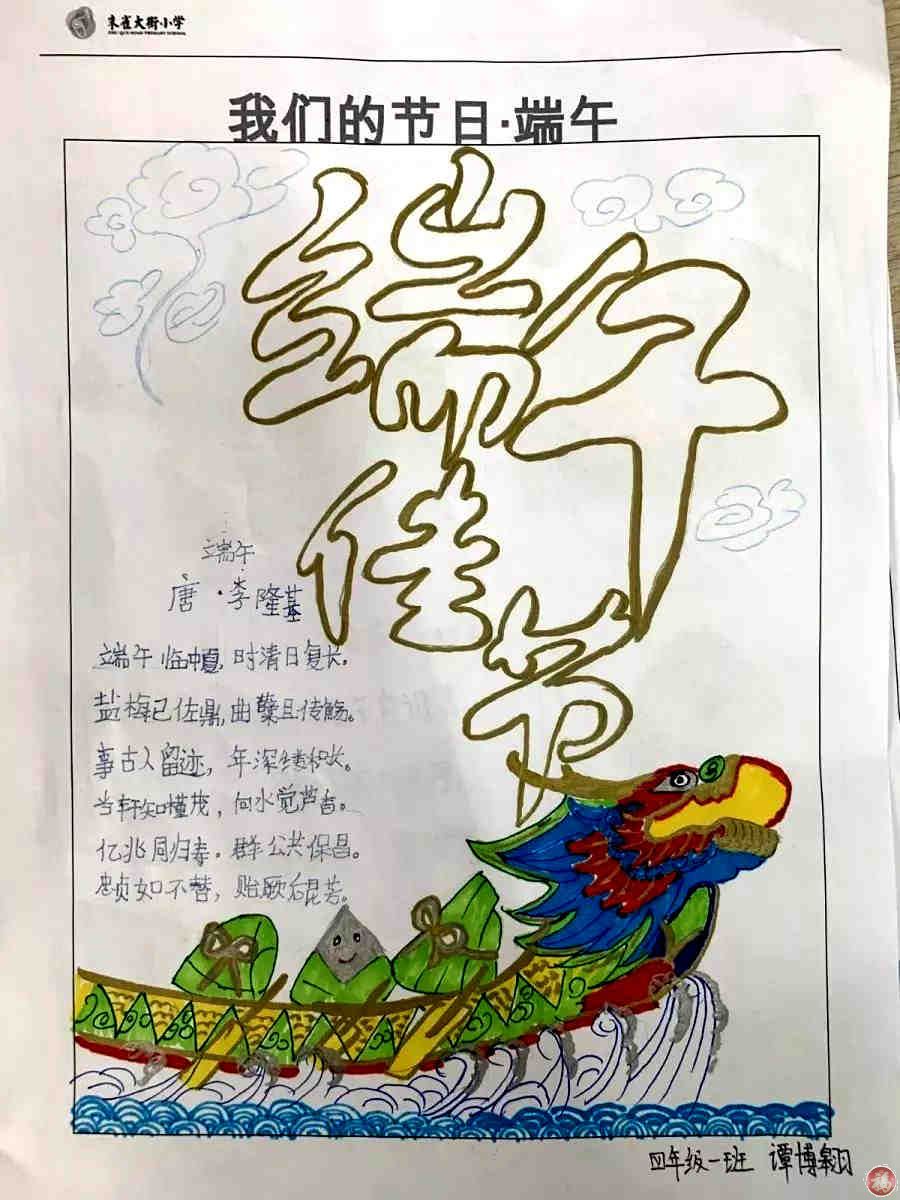 朱雀大街小学
ZHU QUE ROAD PRIMARY SCHOOL
我们的节日·端午
端午
佳
节
端午
唐·李隆基
端午临中夏，时清日复长。
盐梅已佐鼎，曲糵且传觞。
事古人留迹，年深缕积长。
当轩知槿茂，向水觉芦香。
亿兆同归寿。群公共保昌。
忠贞如不替，贻厥后昆芳。
四年级一班 谭博翱
福